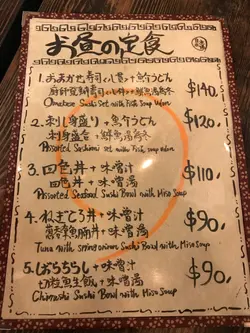 お昼の定食
1. おまかせ寿司(八貫)+魚介うどん $140,
Omakase Sushi Set with Fish Soup Udon
2. 刺し身盛り+魚介うどん $120,
刺身盛合+鮮魚湯烏冬
Assorted Sashimi Set with Fish Soup Udon
3. 四色丼+味噌汁 $110,
四色丼+味噌湯
Assorted Seafood Sushi Bowl with Miso Soup
4. ねぎとろ丼+味噌汁 $90,
蔥吞拿魚腩丼+味噌湯
Tuna with spring onion Sushi Bowl with Miso Soup
5. ばらちらし+味噌汁 $90,
切粒魚生飯+味噌湯
Chirashi Sushi Bowl with Miso Soup